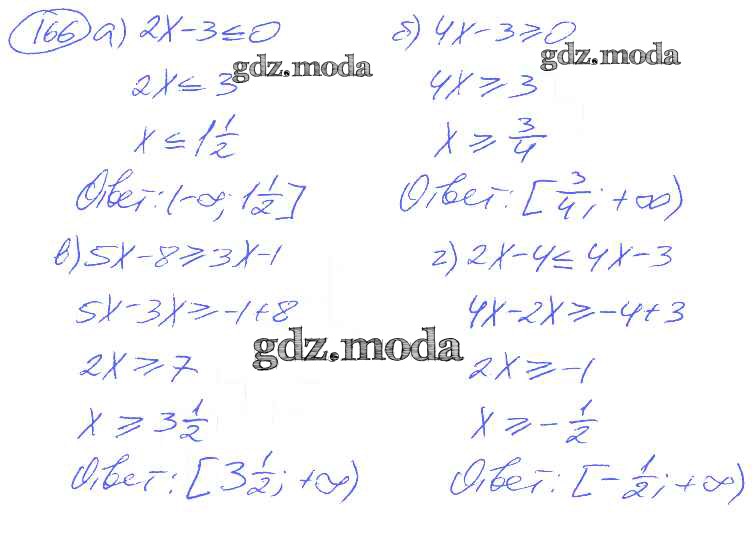 166 а) 2x-3≤0
2x≤3
x≤1 1/2
Ответ: (-∞; 1 1/2]
б) 4x-3≥0
4x≥3
x≥3/4
Ответ: [3/4; +∞)
в) 5x-8≥3x-1
5x-3x≥-1+8
2x≥7
x≥3 1/2
Ответ: [3 1/2; +∞)
г) 2x-4≤4x-3
4x-2x≥-4+3
2x≥-1
x≥-1/2
Ответ: [-1/2; +∞)
gdz.moda
gdz.moda
gdz.moda